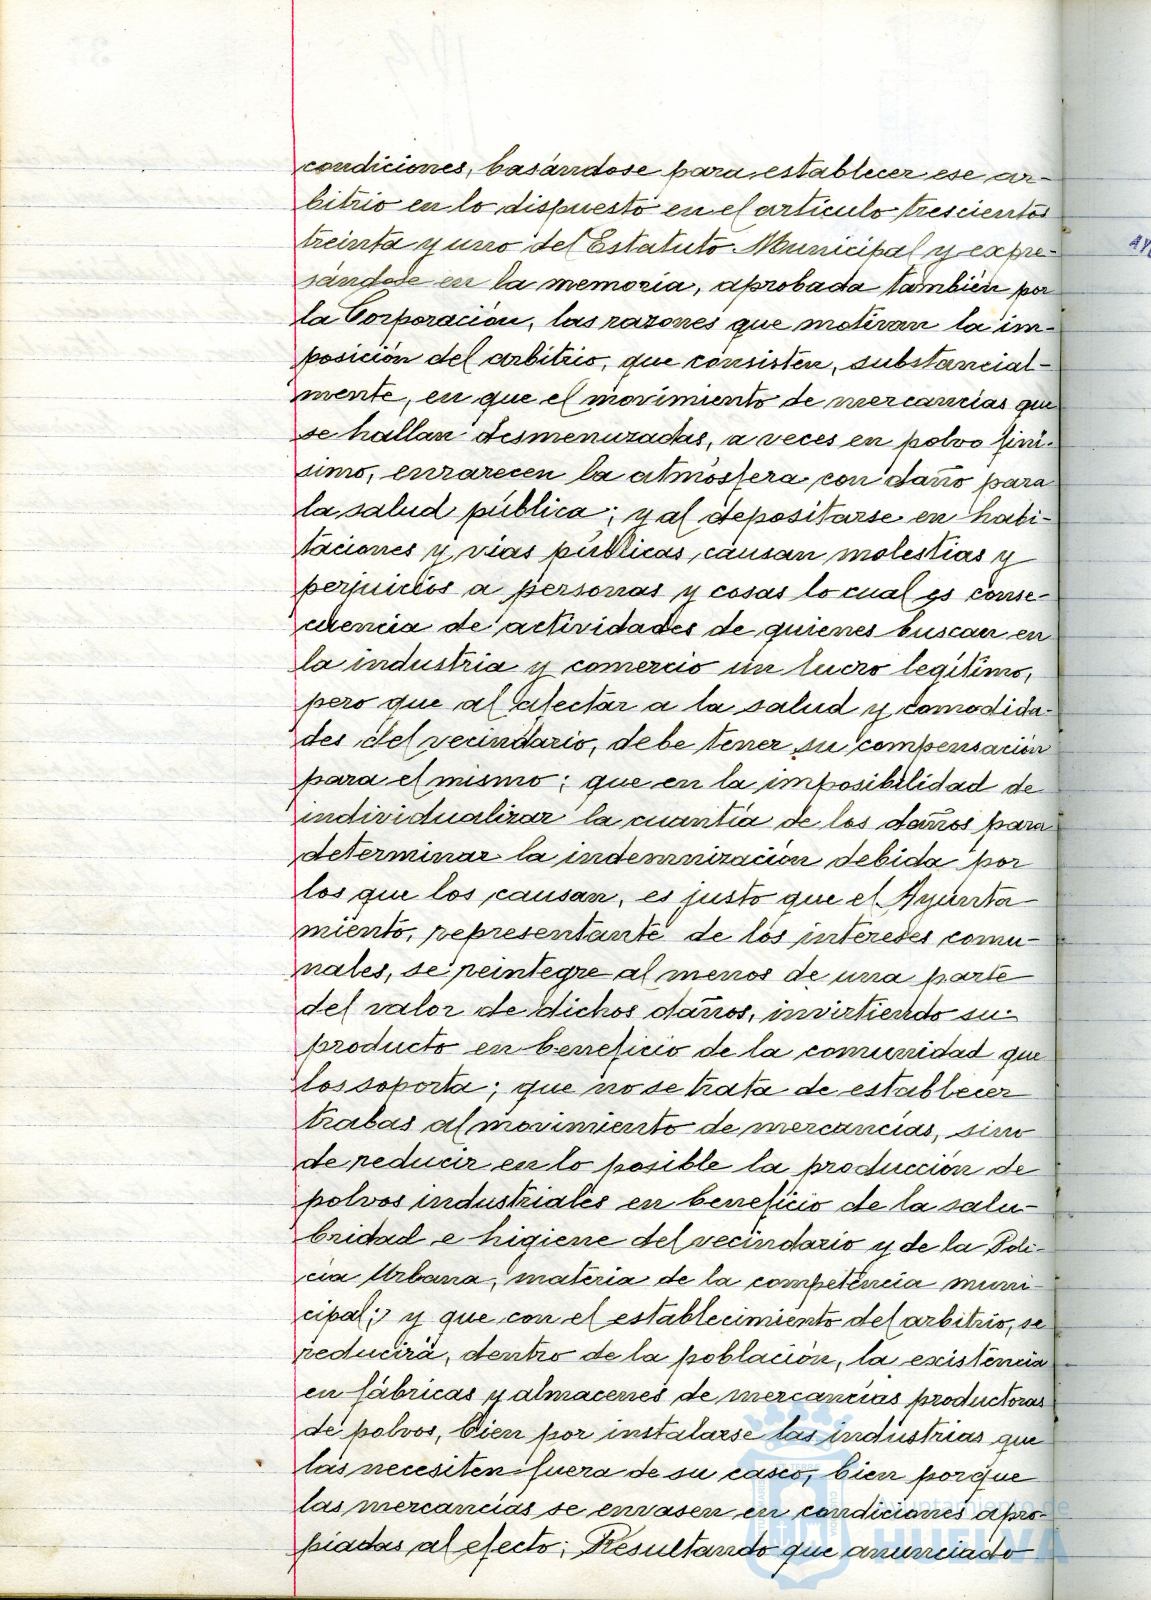 condiciones, basándose para establecer ese ar-
bitrio en lo dispuesto en el artículo trescientos
treinta y uno del Estatuto Municipal y expre-
sándose en la memoria, aprobada también por
la Corporación, las razones que motivan la im-
posición del arbitrio, que consisten, substancial-
mente, en que el movimiento de mercancías que
se hallan desmenuzadas, a veces en polvo finí-
simo, enrarecen la atmósfera con daño para
la salud pública; y al depositarse en habi-
taciones y vías públicas, causan molestias y
perjuicios a personas y cosas lo cual es conse-
cuencia de actividades de quienes buscan en
la industria y comercio un lucro legítimo,
pero que al afectar a la salud y comodida-
des del vecindario, debe tener su compensación
para el mismo; que en la imposibilidad de
individualizar la cuantía de los daños para
determinar la indemnización debida por
los que los causan, es justo que el Ayunta-
miento, representante de los intereses comu-
nales, se reintegre al menos de una parte
del valor de dichos daños, invirtiendo su
producto en beneficio de la comunidad que
los soporta; que no se trata de establecer
trabas al movimiento de mercancías, sino
de reducir en lo posible la producción de
polvos industriales en beneficio de la salu-
bridad e higiene del vecindario y de la Poli-
cía Urbana, materia de la competencia muni-
cipal; y que con el establecimiento del arbitrio, se
reducirá, dentro de la población, la existencia
en fábricas y almacenes de mercancías productoras
de polvos, bien por instalarse las industrias que
las necesiten fuera de su casco, bien porque
las mercancías se envasen en condiciones apro-
piadas al efecto; Resultando que anunciado
Ayuntamiento de
HUELVA